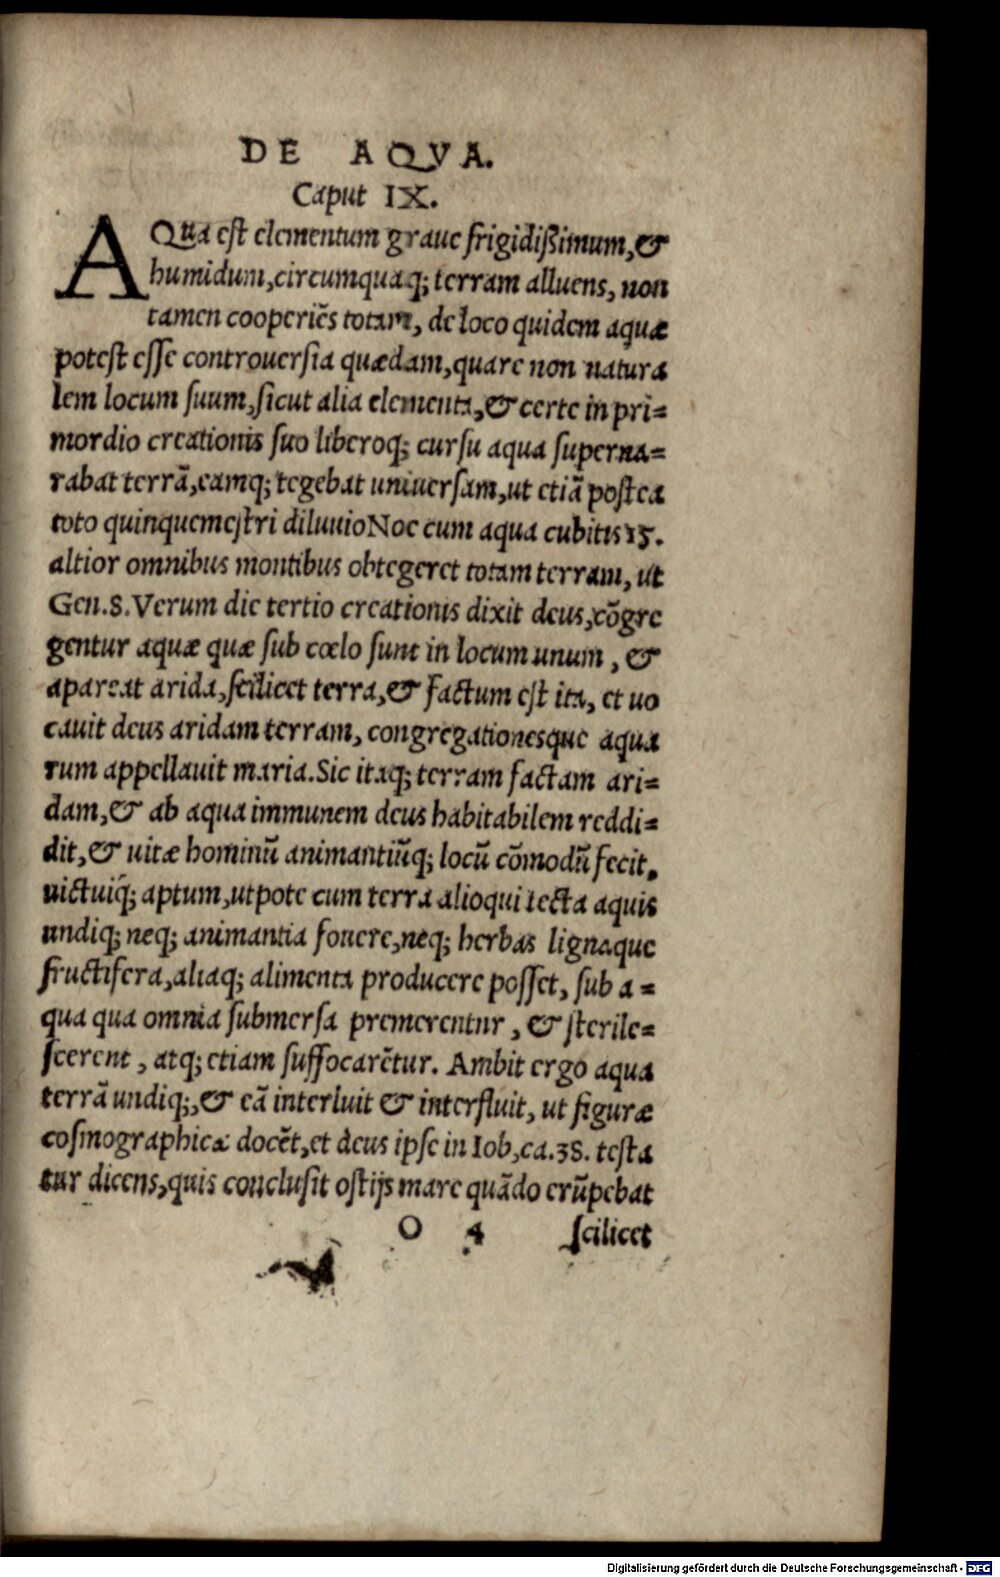 DE AQVA.
Caput IX.
AQua est elementum graue frigidißimum, &
humidum, circumquaq; terram alluens, non
tamen cooperiẽs totam, de loco quidem aquæ
potest esse controuersia quædam, quare non natura
lem locum suum, sicut alia elementa, & certe in pri=
mordio creationis suo liberoq; cursu aqua superna=
rabat terrã, eamq; tegebat uniuersam, ut etiã postea
toto quinquemestri diluuio Noe cum aqua cubitis 15.
altior omnibus montibus obtegeret totam terram, ut
Gen.8. Verum die tertio creationis dixit deus, cõgre
gentur aquæ quæ sub cœlo sunt in locum unum, &
apareat arida, scilicet terra, & factum est ita, et uo
cauit deus aridam terram, congregationesque aqua
rum appellauit maria. Sic itaq; terram factam ari=
dam, & ab aqua immunem deus habitabilem reddi=
dit, & uitæ hominũ animantiũq; locũ cõmodũ fecit,
uictuiq́; aptum, utpote cum terra alioqui tecta aquis
undiq; neq; animantia fouere, neq; herbas lignaque
fructifera, aliaq; alimenta producere posset, sub a=
qua qua omnia submersa premerentur, & sterile=
scerent, atq; etiam suffocarẽtur. Ambit ergo aqua
terrã undiq;, & eã interluit & interfluit, ut figuræ
cosmographicæ docẽt, et deus ipse in Iob, ca.38. testa
tur dicens, quis conclusit ostijs mare quãdo erũpebat
O 4 scilicet
Digitalisierung gefördert durch die Deutsche Forschungsgemeinschaft - DFG